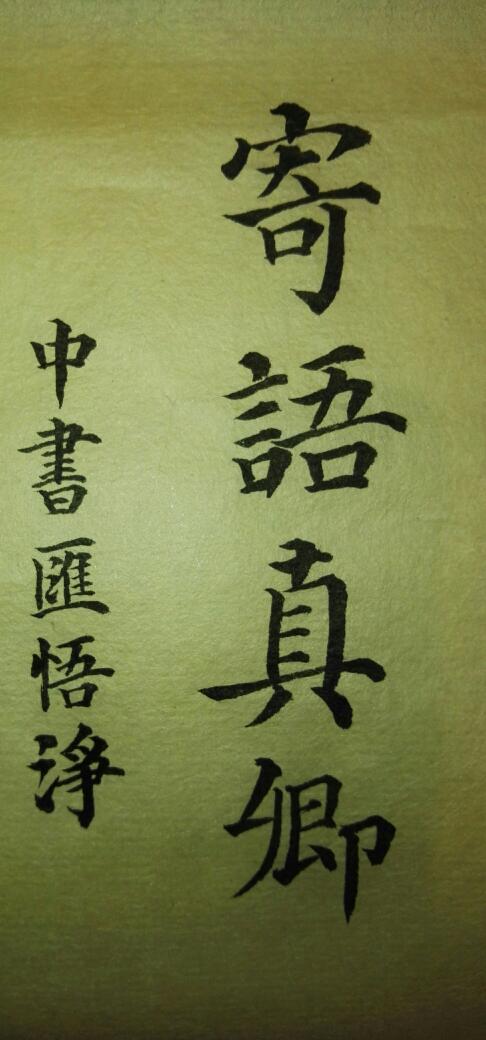 寄語真卿
中書匯悟淨